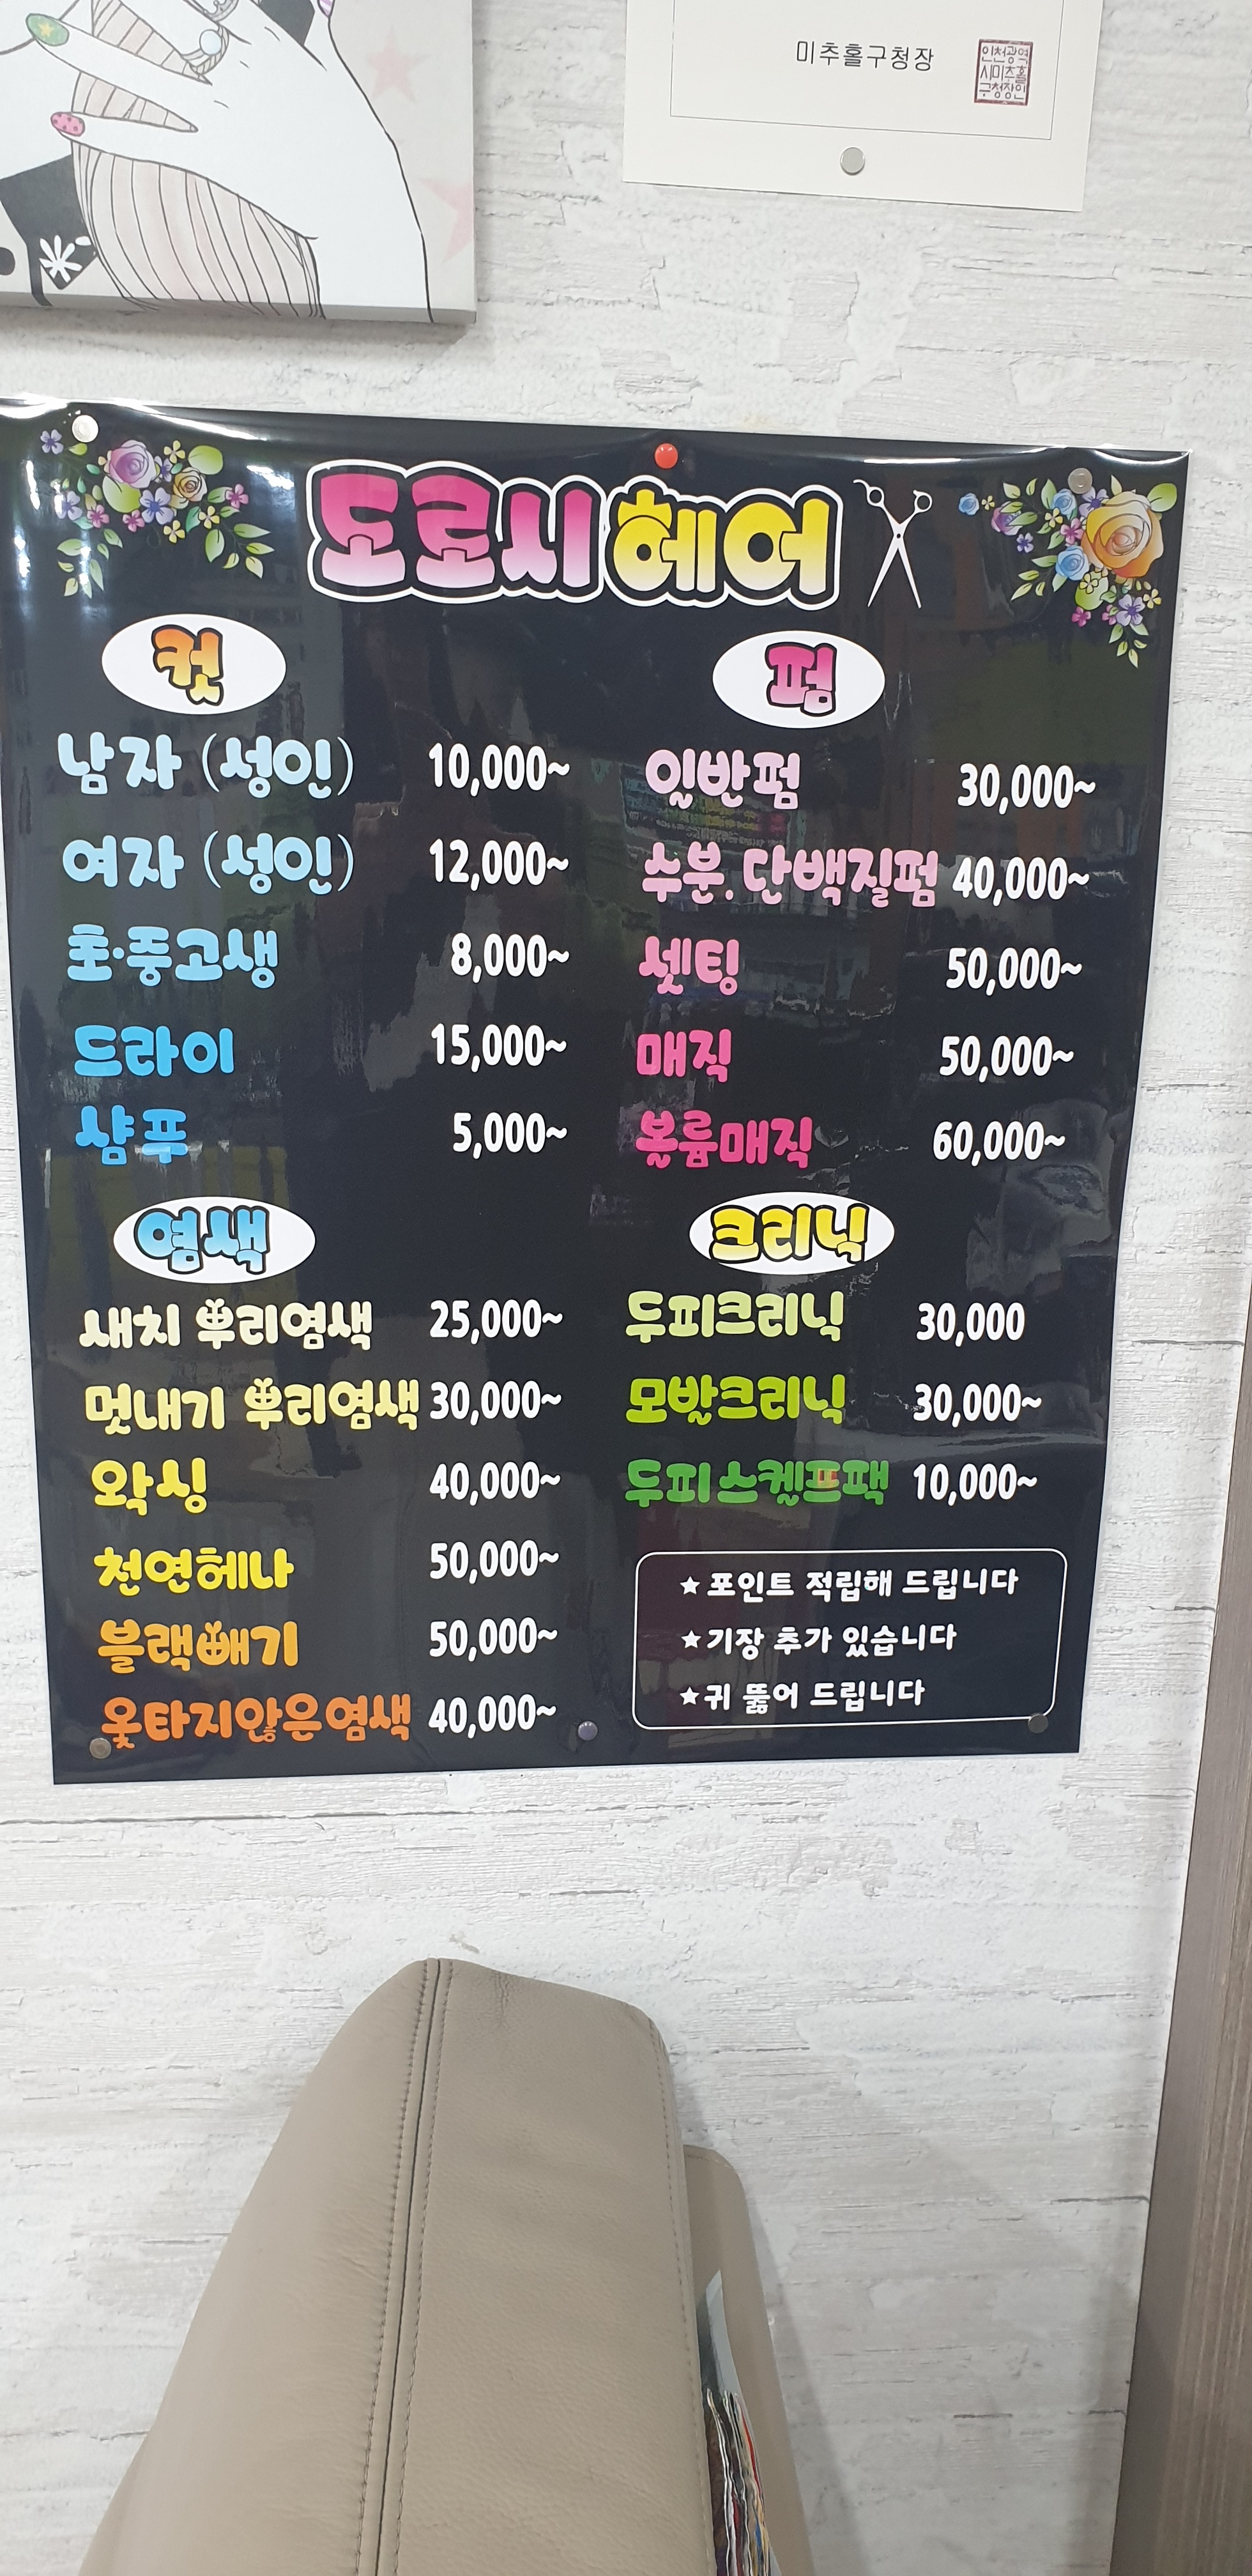 미추홀구청장
인천광역
시미추홀
구청장인
도로시헤어
컷
남자 (성인) 10,000~
여자 (성인) 12,000~
초·중고생 8,000~
드라이 15,000~
샴푸 5,000~
펌
일반펌 30,000~
수분.단백질펌 40,000~
셋팅 50,000~
매직 50,000~
볼륨매직 60,000~
염색
새치 뿌리염색 25,000~
멋내기 뿌리염색 30,000~
왁싱 40,000~
천연헤나 50,000~
블랙빼기 50,000~
옻타지않은염색 40,000~
크리닉
두피크리닉 30,000
모발크리닉 30,000~
두피스켈프팩 10,000~
★포인트 적립해 드립니다
★기장 추가 있습니다
★귀 뚫어 드립니다